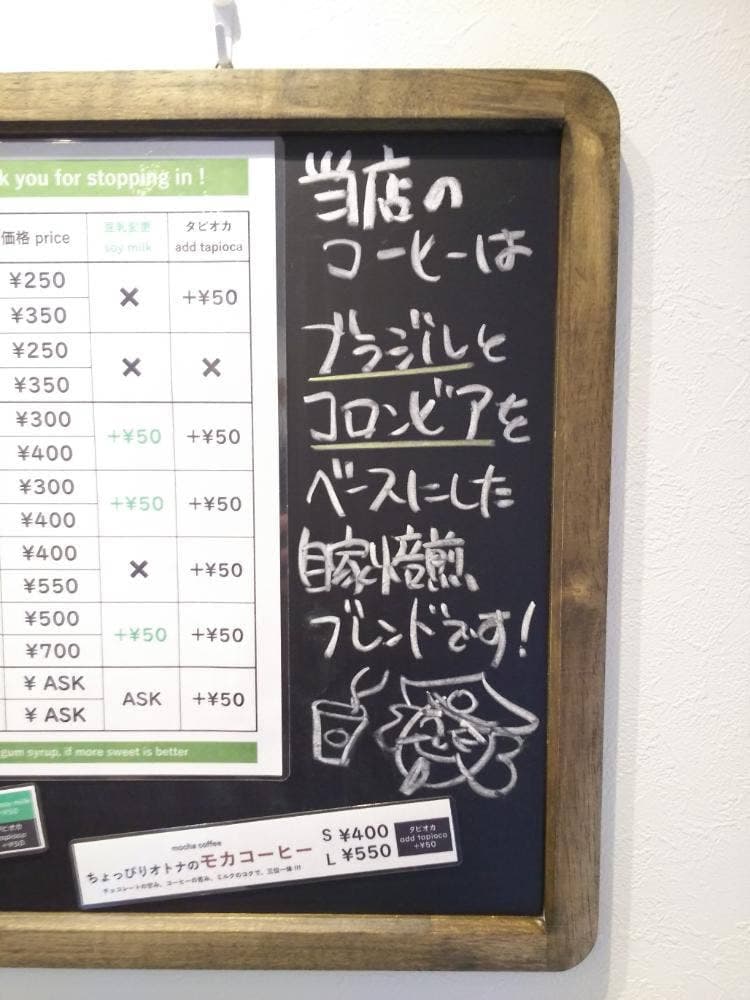 k you for stopping in !
価格 price 豆乳変更 soy milk タピオカ add tapioca
¥250 × +¥50
¥350
¥250 × ×
¥350
¥300 +¥50 +¥50
¥400
¥300 +¥50 +¥50
¥400
¥400 × +¥50
¥550
¥500 +¥50 +¥50
¥700
¥ ASK ASK +¥50
¥ ASK
gum syrup, if more sweet is better
当店の
コーヒーは
ブラジルと
コロンビアを
ベースにした
自家焙煎
ブレンドです!
soy milk
+¥50
タピオカ
tapioca
+¥50
mocha coffee
ちょっぴりオトナのモカコーヒー
チョコレートの甘み、コーヒーの苦み、ミルクのコクで、三位一体 !!!
S ¥400
L ¥550
タピオカ
add tapioca
+¥50